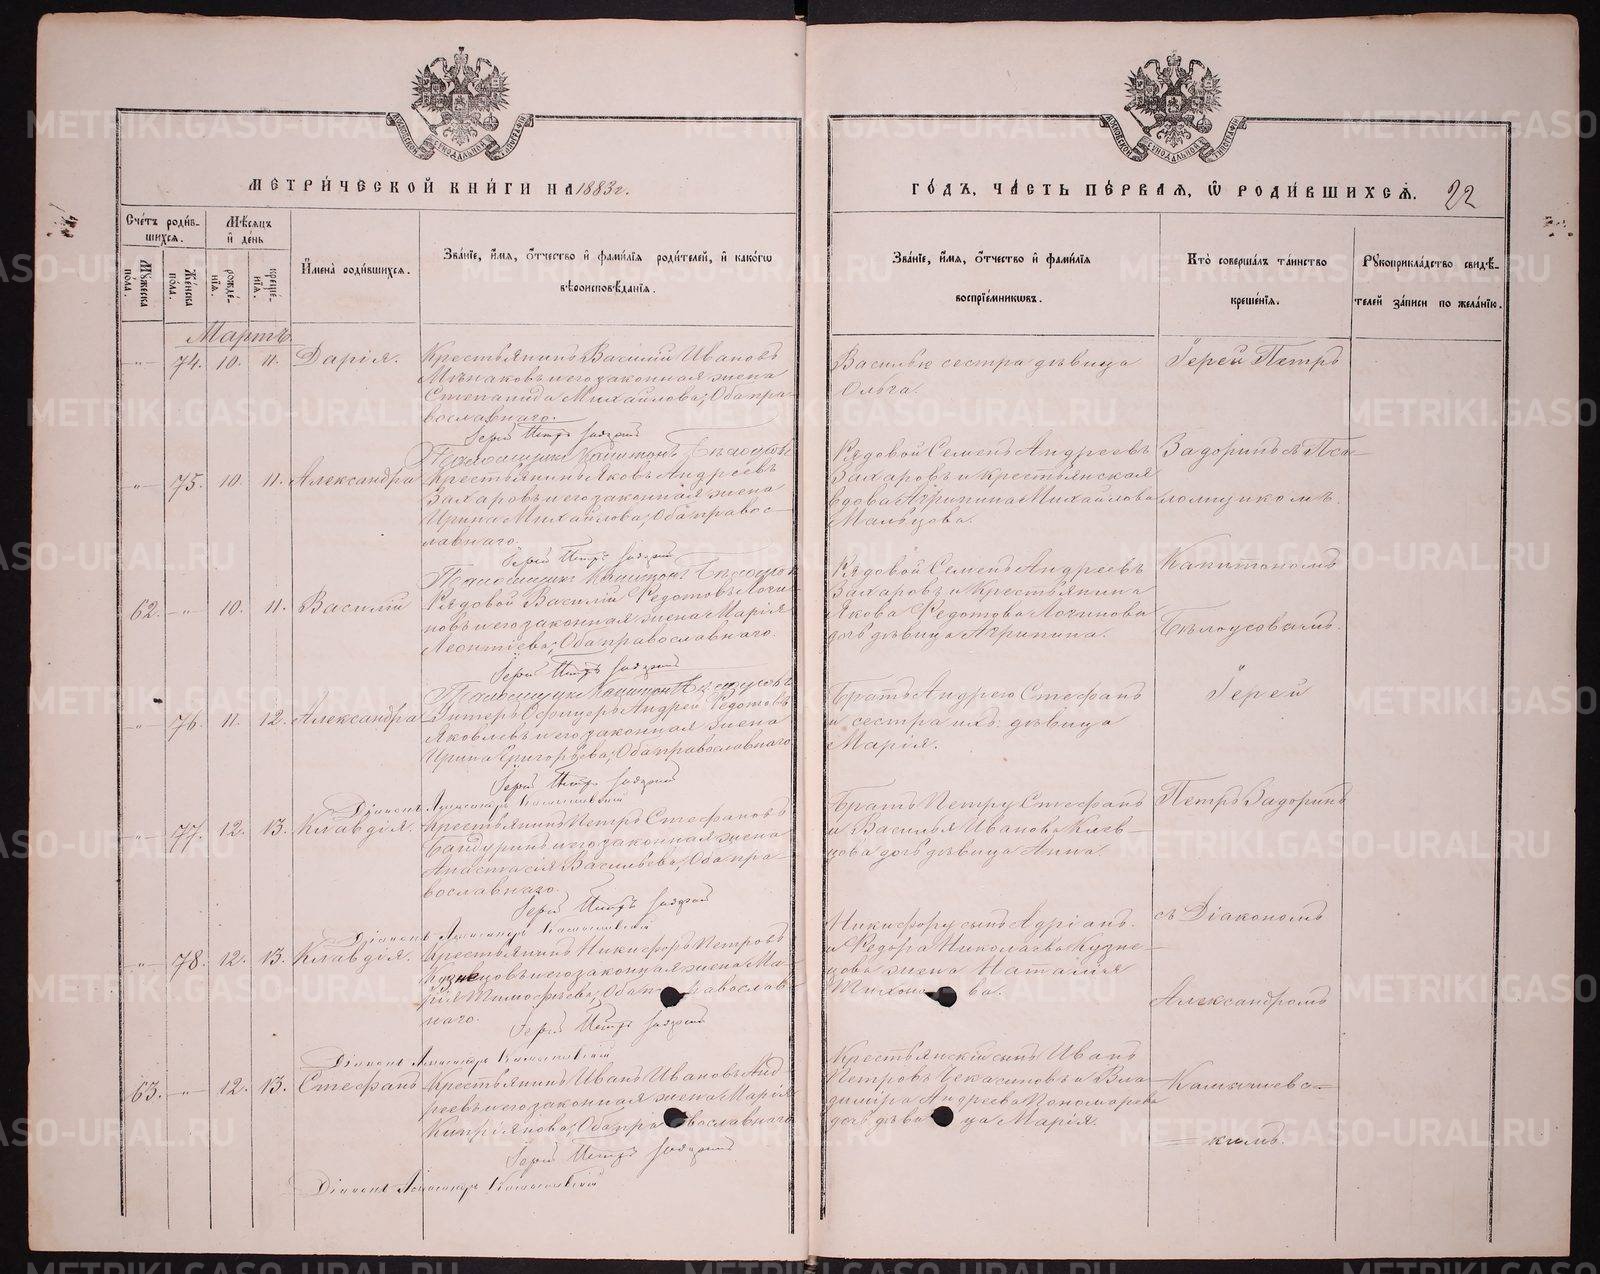 МЕТРИ́ЧЕСКОЙ КНИ́ГИ НА 1883 г.
ГО́ДЪ, ЧА́СТЬ ПЕ́РВАЯ, Ѡ РОДИ́ВШИХСѦ. 22
Сче́тъ роди́в-
шихся.
Мꙋ́жеска по́ла.
Же́нска по́ла.
Мѣ́сяцъ
и҆ де́нь
рожде́-
нїѧ.
креще́-
нїѧ.
И҆мена̀ роди́вшихся.
Зва́нїе, и҆́мѧ, ѻ҆́тчество и҆ фами́лїѧ роди́телей, и҆ како́гѡ
вѣроисповѣ́данїѧ.
Зва́нїе, и҆́мѧ, ѻ҆́тчество и҆ фами́лїѧ
воспрїе́мникѡвъ.
Кто̀ соверша́лъ та́инство
креще́нїѧ.
Рꙋкоприкла́дство свидѣ́-
телей за́писи по жела́нїю.
Мартъ.
74. 10. 11. Дарія.
Крестьянинъ Василій Ивановъ
и его законная жена
Степанида Михайлова; Оба пра-
вославнаго.
Іерей Петръ
Василью сестра дѣвица
Ольга.
Іерей Петръ
75. 10. 11. Александра
Крестьянинъ Яковъ Андреевъ
Захаровъ и его законная жена
Ирина Михайлова; Оба правос-
лавнаго.
Іерей Петръ
Рядовой Семенъ Андреевъ
Захаровъ и крестьянская
вдова Агрипина Михайлова
Мальцова.
Задоринъ съ Пса-
ломщикомъ
62. 10. 11. Василій
Рядовой Василій Федотовъ Логи-
новъ и его законная жена Марія
Леонтіева; Оба православнаго.
Іерей Петръ
Рядовой Семенъ Андреевъ
Захаровъ и Крестьянина
Якова Федотова Логинова
дочь дѣвица Агрипина.
Капитономъ
Бѣлоусовымъ.
76. 11. 12. Александра
Унтеръ Офицеръ Андрей Федотовъ
Яковлевъ и его законная жена
Ирина Григорьева; Оба православнаго
Іерей Петръ
Діаконъ Александръ
Братъ Андрею Стефанъ
и сестра ихъ: дѣвица
Марія.
Іерей
77. 12. 13. Клавдія.
Крестьянинъ Петръ Стефановъ
Бандуринъ и его законная жена
Анастасія Васильева; Оба пра-
вославнаго.
Іерей Петръ
Діаконъ Александръ
Братъ Петру Стефанъ
и Василья Иванова
дочь дѣвица Анна.
Петръ Задоринъ
78. 12. 13. Клавдія.
Крестьянинъ Никифоръ Петровъ
Кузнецовъ и его законная жена Ма-
рія Тимофѣева; Оба православ-
наго.
Іерей Петръ
Діаконъ Александръ
Никифору сынъ Адріанъ
и Федора Николаева Кузне-
цова жена Наталія
Тихонова.
съ Діакономъ
Александромъ
63. 12. 13. Стефанъ
Крестьянинъ Иванъ Ивановъ Анд-
реевъ и его законная жена Марія
Кипріянова; Оба православнаго
Іерей Петръ
Діаконъ Александръ
Крестьянскій сынъ Иванъ
Петровъ и Вла-
диміра Андреева Пономарева
дочь дѣвица Марія.
Камышевс=
=кимъ.
METRIKI.GASO-URAL.RU